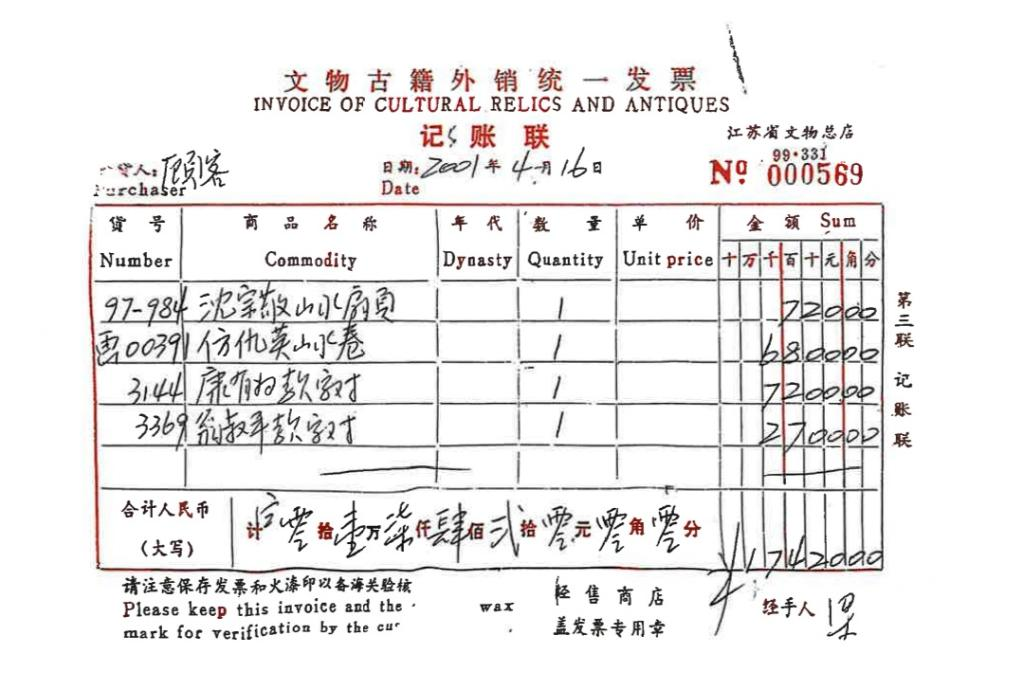 文物古籍外销统一发票
INVOICE OF CULTURAL RELICS AND ANTIQUES
记账联
江苏省文物总店
99·331
货人:顾客
日期:2001年4月16日
Nº 000569
Purchaser
Date
货号 商品名称 年代 数量 单价 金额 Sum
Number Commodity Dynasty Quantity Unit price 十万千百十元角分
97-984 沈宗敬山水扇页 1 72000
00391 仿仇英山水卷 1 680000
3144 康有为款字对 1 720000
3369 翁叔平款字对 1 270000
合计人民币
(大写)
计 零拾壹万柒仟肆佰贰拾零元零角零分
¥1742000
第三联 记账联
请注意保存发票和火漆印以备海关验核
Please keep this invoice and the wax
mark for verification by the cu
经售商店
盖发票专用章
经手人